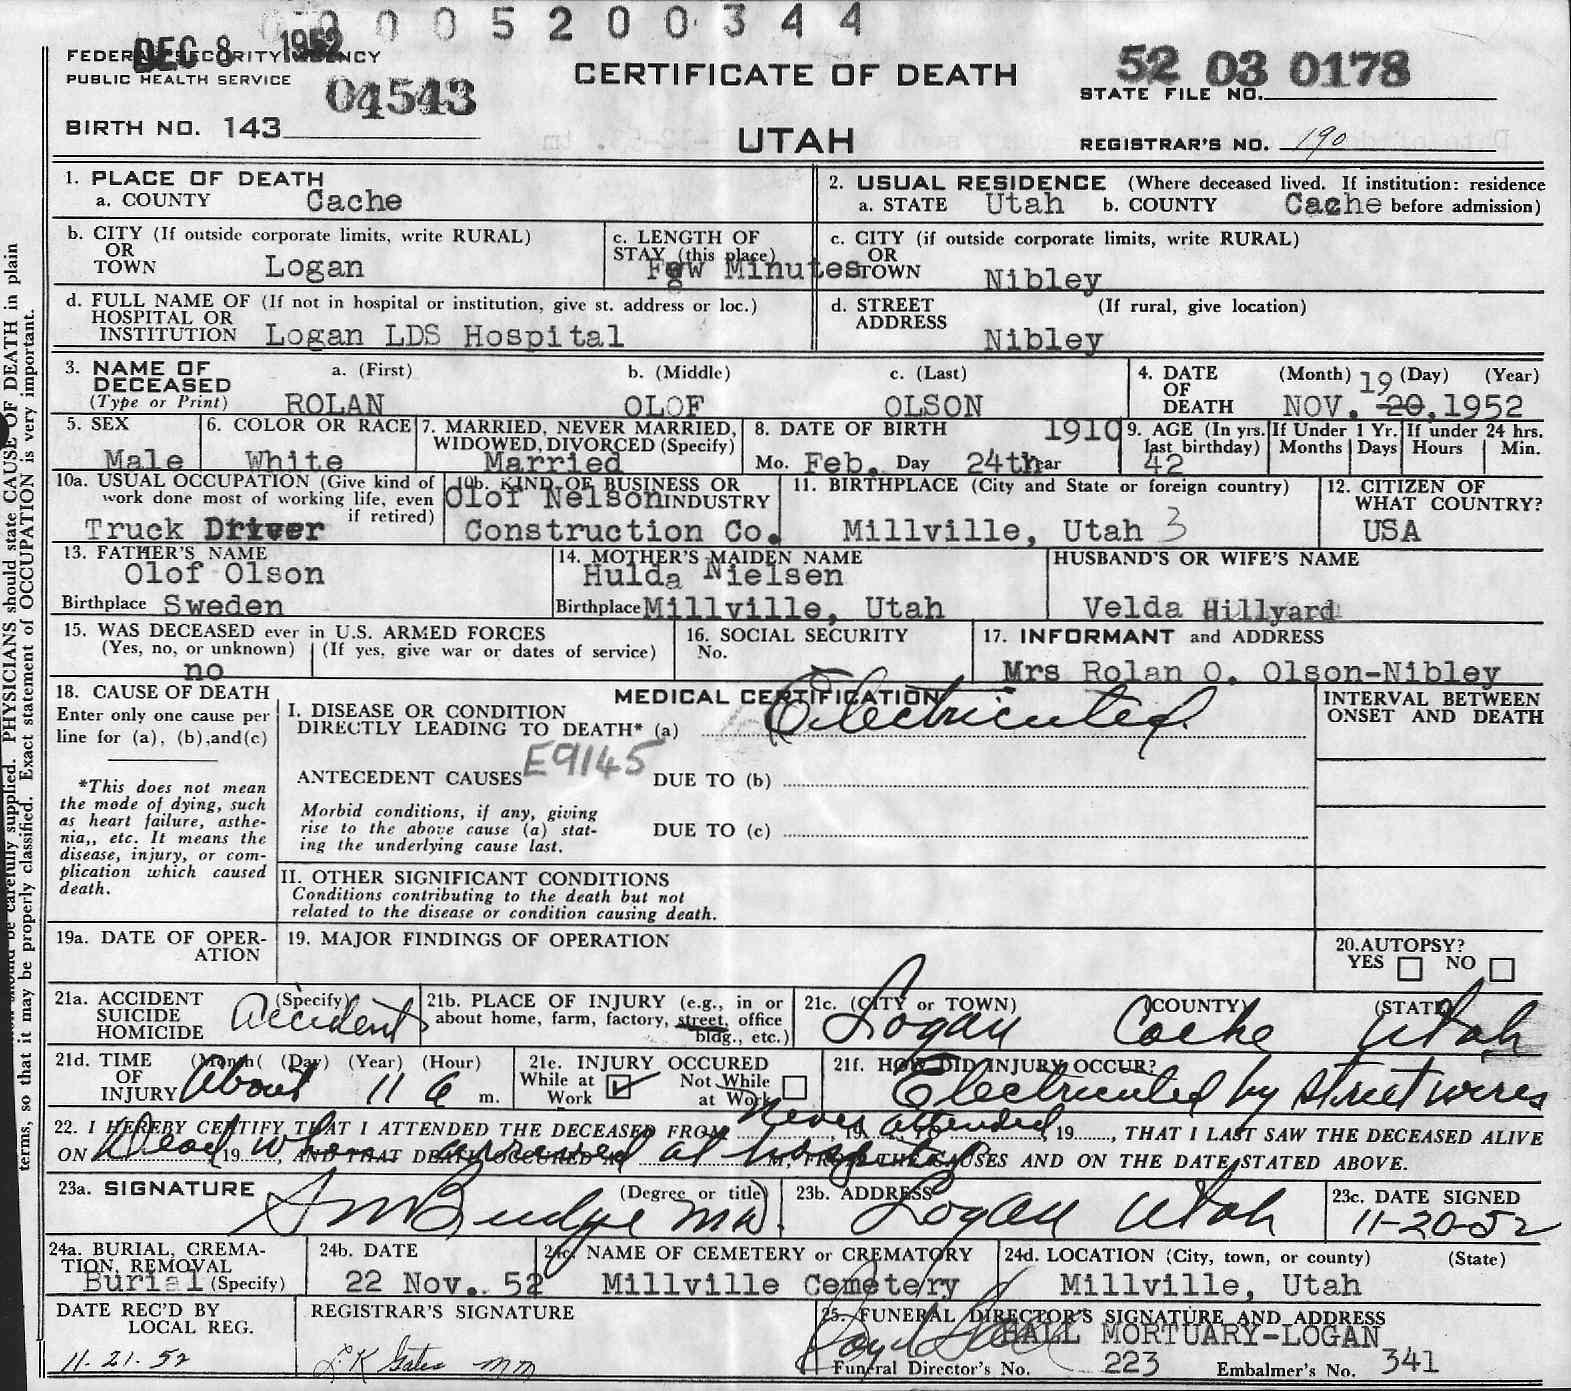 0 0 0 5 2 0 0 3 4 4
FEDERAL SECURITY AGENCY
DEC 8 1952
PUBLIC HEALTH SERVICE
04543
CERTIFICATE OF DEATH
52 03 0178
STATE FILE NO.
BIRTH NO. 143
UTAH
REGISTRAR'S NO. 190
1. PLACE OF DEATH
a. COUNTY Cache
2. USUAL RESIDENCE (Where deceased lived. If institution: residence
a. STATE Utah b. COUNTY Cache before admission)
b. CITY (If outside corporate limits, write RURAL)
OR
TOWN Logan
c. LENGTH OF
STAY (this place)
Few Minutes
c. CITY (if outside corporate limits, write RURAL)
OR
TOWN Nibley
d. FULL NAME OF (If not in hospital or institution, give st. address or loc.)
HOSPITAL OR
INSTITUTION Logan LDS Hospital
d. STREET (If rural, give location)
ADDRESS Nibley
3. NAME OF a. (First) b. (Middle) c. (Last)
DECEASED
(Type or Print) ROLAN OLOF OLSON
4. DATE (Month) 19 (Day) (Year)
OF
DEATH NOV. 20, 1952
5. SEX
Male
6. COLOR OR RACE
White
7. MARRIED, NEVER MARRIED,
WIDOWED, DIVORCED (Specify)
Married
8. DATE OF BIRTH 1910
Mo. Feb. Day 24th Year
9. AGE (In yrs. last birthday)
42
If Under 1 Yr.
Months Days
If under 24 hrs.
Hours Min.
10a. USUAL OCCUPATION (Give kind of
work done most of working life, even
if retired)
Truck Driver
10b. KIND OF BUSINESS OR
Olof Nelson INDUSTRY
Construction Co.
11. BIRTHPLACE (City and State or foreign country)
Millville, Utah 3
12. CITIZEN OF
WHAT COUNTRY?
USA
13. FATHER'S NAME
Olof Olson
Birthplace Sweden
14. MOTHER'S MAIDEN NAME
Hulda Nielsen
Birthplace Millville, Utah
HUSBAND'S OR WIFE'S NAME
Velda Hillyard
15. WAS DECEASED ever in U.S. ARMED FORCES
(Yes, no, or unknown) (If yes, give war or dates of service)
no
16. SOCIAL SECURITY
No.
17. INFORMANT and ADDRESS
Mrs Rolan O. Olson-Nibley
18. CAUSE OF DEATH
Enter only one cause per
line for (a), (b), and (c)
*This does not mean
the mode of dying, such
as heart failure, asthe-
nia,, etc. It means the
disease, injury, or com-
plication which caused
death.
MEDICAL CERTIFICATION
I. DISEASE OR CONDITION
DIRECTLY LEADING TO DEATH* (a) Electricuted
ANTECEDENT CAUSES E9145 DUE TO (b)
Morbid conditions, if any, giving
rise to the above cause (a) stat-
ing the underlying cause last.
DUE TO (c)
II. OTHER SIGNIFICANT CONDITIONS
Conditions contributing to the death but not
related to the disease or condition causing death.
INTERVAL BETWEEN
ONSET AND DEATH
19a. DATE OF OPER-
ATION
19. MAJOR FINDINGS OF OPERATION
20. AUTOPSY?
YES NO
21a. ACCIDENT (Specify)
SUICIDE
HOMICIDE
Accident
21b. PLACE OF INJURY (e.g., in or
about home, farm, factory, street, office
bldg., etc.)
21c. (CITY or TOWN) (COUNTY) (STATE)
Logan Cache Utah
21d. TIME (Month) (Day) (Year) (Hour)
OF
INJURY About 11 a m.
21e. INJURY OCCURED
While at Work Not While at Work
21f. HOW DID INJURY OCCUR?
Electricuted by street wires
22. I HEREBY CERTIFY THAT I ATTENDED THE DECEASED FROM never attended, 19......, THAT I LAST SAW THE DECEASED ALIVE
ON Dead when arrived at hospital, 19......, AND THAT DEATH OCCURED AT M, FROM THE CAUSES AND ON THE DATE STATED ABOVE.
23a. SIGNATURE (Degree or title)
SM Budge MD.
23b. ADDRESS
Logan Utah
23c. DATE SIGNED
11-20-52
24a. BURIAL, CREMA-
TION, REMOVAL
Burial (Specify)
24b. DATE
22 Nov. 52
24c. NAME OF CEMETERY or CREMATORY
Millville Cemetery
24d. LOCATION (City, town, or county) (State)
Millville, Utah
DATE REC'D BY
LOCAL REG.
11-21-52
REGISTRAR'S SIGNATURE
25. FUNERAL DIRECTOR'S SIGNATURE AND ADDRESS
HALL MORTUARY-LOGAN
Funeral Director's No. 223 Embalmer's No. 341
terms, so that it may be properly classified. Exact statement of OCCUPATION is very important.
should be carefully supplied. PHYSICIANS should state CAUSE OF DEATH in plain